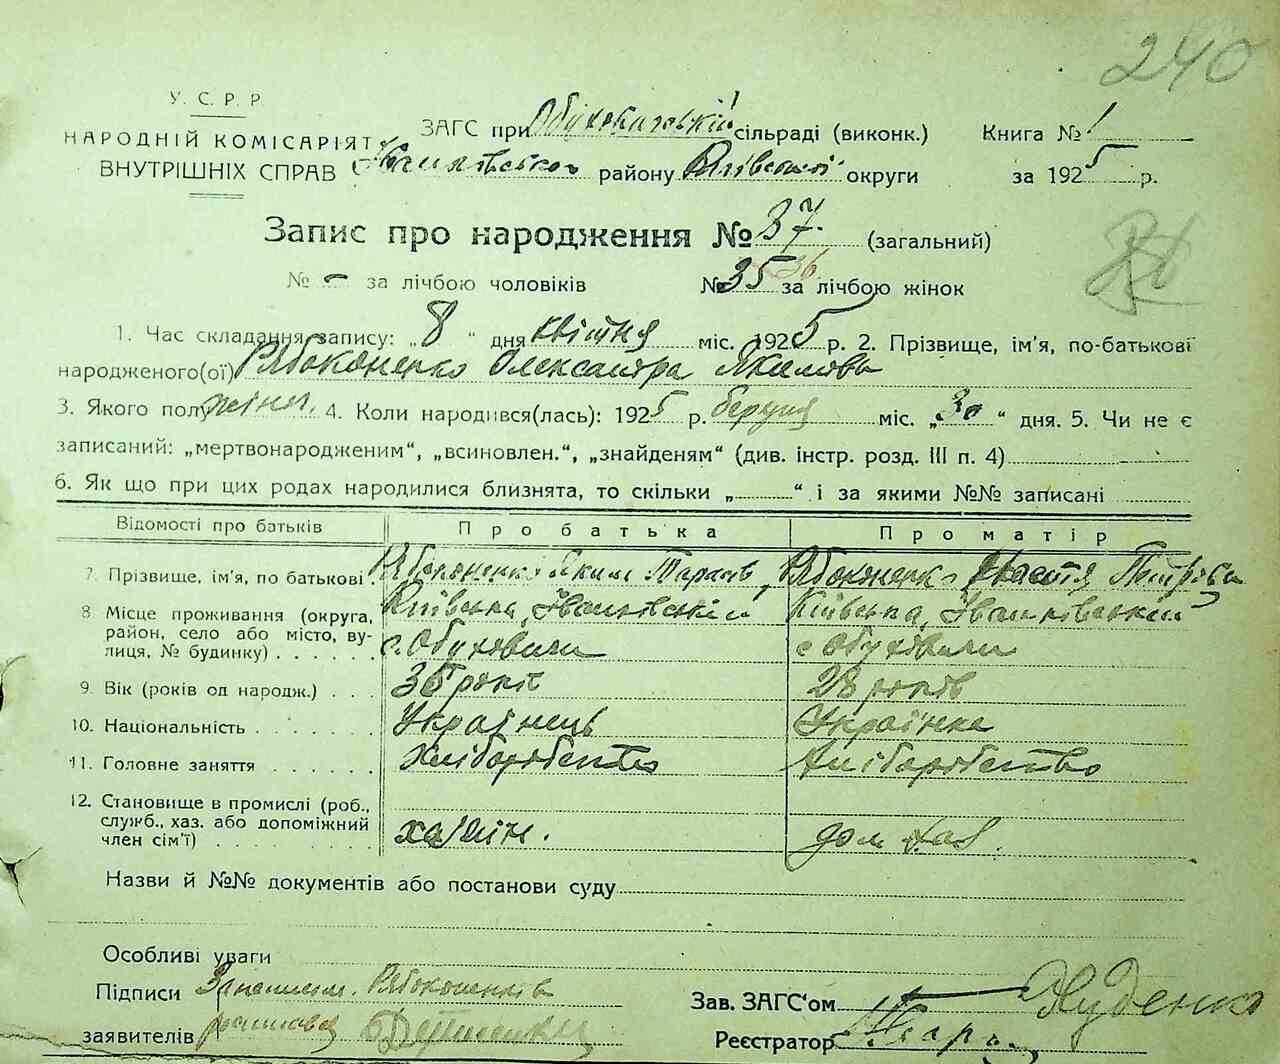 240
У. С. Р. Р
НАРОДНІЙ КОМІСАРІЯТ
ВНУТРІШНІХ СПРАВ
ЗАГС при Обуховицькій сільраді (виконк.) Книга № 1
району Київської округи за 1925 р.
Запис про народження № 37. (загальний)
№ – за лічбою чоловіків № 35 36 за лічбою жінок
1. Час складання запису: „8 “ дня квітня міс. 1925 р. 2. Прізвище, ім'я, по-батькові
народженого(ої) Рябоконенко Олександра Якимова
3. Якого полу жіноч. 4. Коли народився(лась): 1925 р. березня міс. „30 “ дня. 5. Чи не є
записаний: „мертвонародженим“, „всиновлен.“, „знайденям“ (див. інстр. розд. III п. 4)
6. Як що при цих родах народилися близнята, то скільки „ “ і за якими №№ записані
Відомості про батьків Про батька Про матір
7. Прізвище, ім'я, по батькові Рябоконенко Яким Тарасів Рябоконенко Настя Петрова
8. Місце проживання (округа, Київська, Іванковський Київська, Іванківський
район, село або місто, ву-
лиця, № будинку) с. Обуховичи с Обуховичи
9. Вік (років од народж.) 36 років 28 років
10. Національність Українець Українка
11. Головне заняття Хліборобство Хліборобство
12. Становище в промислі (роб.,
служб., хаз. або допоміжний
член сім'ї) хазяїн. дом. хаз.
Назви й №№ документів або постанови суду
Особливі уваги
Підписи
заявителів
Зав. ЗАГС'ом
Реєстратор